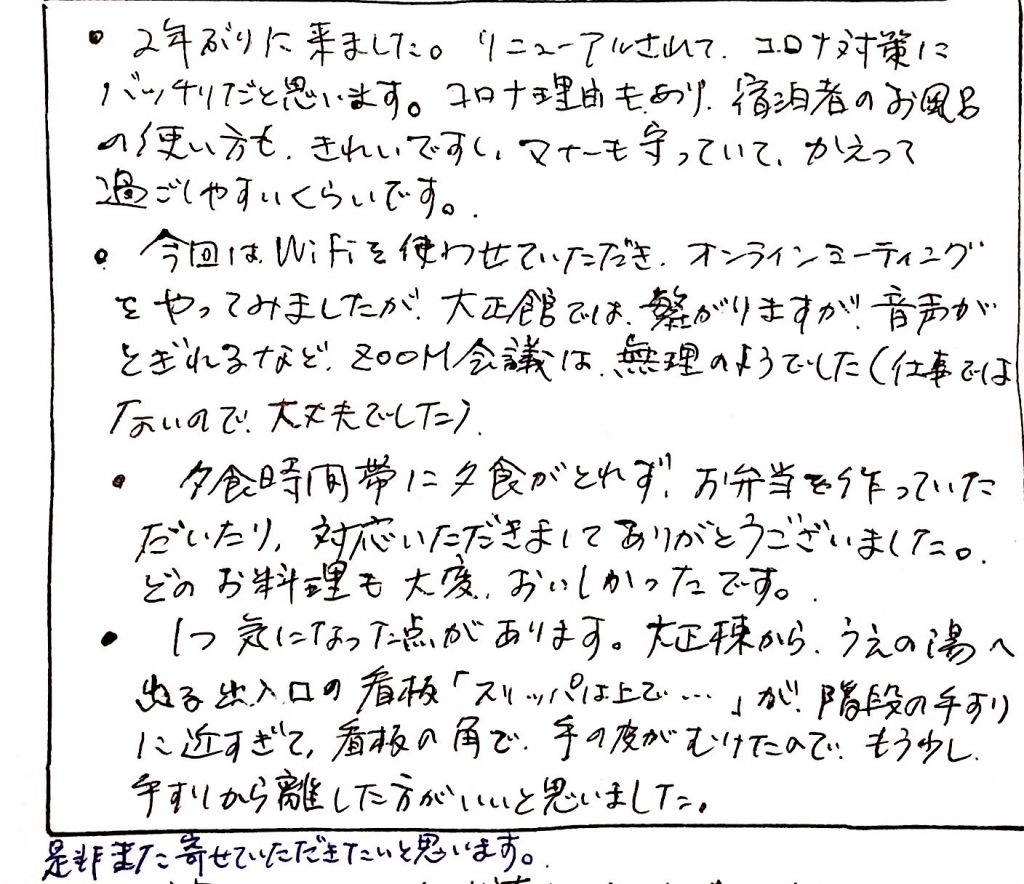 • 2年ぶりに来ました。リニューアルされて、コロナ対策に
バッチリだと思います。コロナ理由もあり、宿泊者のお風呂
の使い方も、きれいですし、マナーも守っていて、かえって
過ごしやすいくらいです。
• 今回はWiFiを使わせていただき、オンラインミーティング
をやってみましたが、大正館では、繋がりますが、音声が
とぎれるなど、ZOOM会議は、無理のようでした(仕事では
ないので、大丈夫でした)
• 夕食時間帯に夕食がとれず、お弁当を作っていた
だいたり、対応いただきましてありがとうございました。
どのお料理も大変、おいしかったです。
• 1つ気になった点があります。大正棟から、うえの湯へ
出る出入口の看板「スリッパは上で…」が、階段の手すり
に近すぎて、看板の角で、手の皮がむけたので、もう少し
手すりから離した方がいいと思いました。
是非また寄せていただきたいと思います。